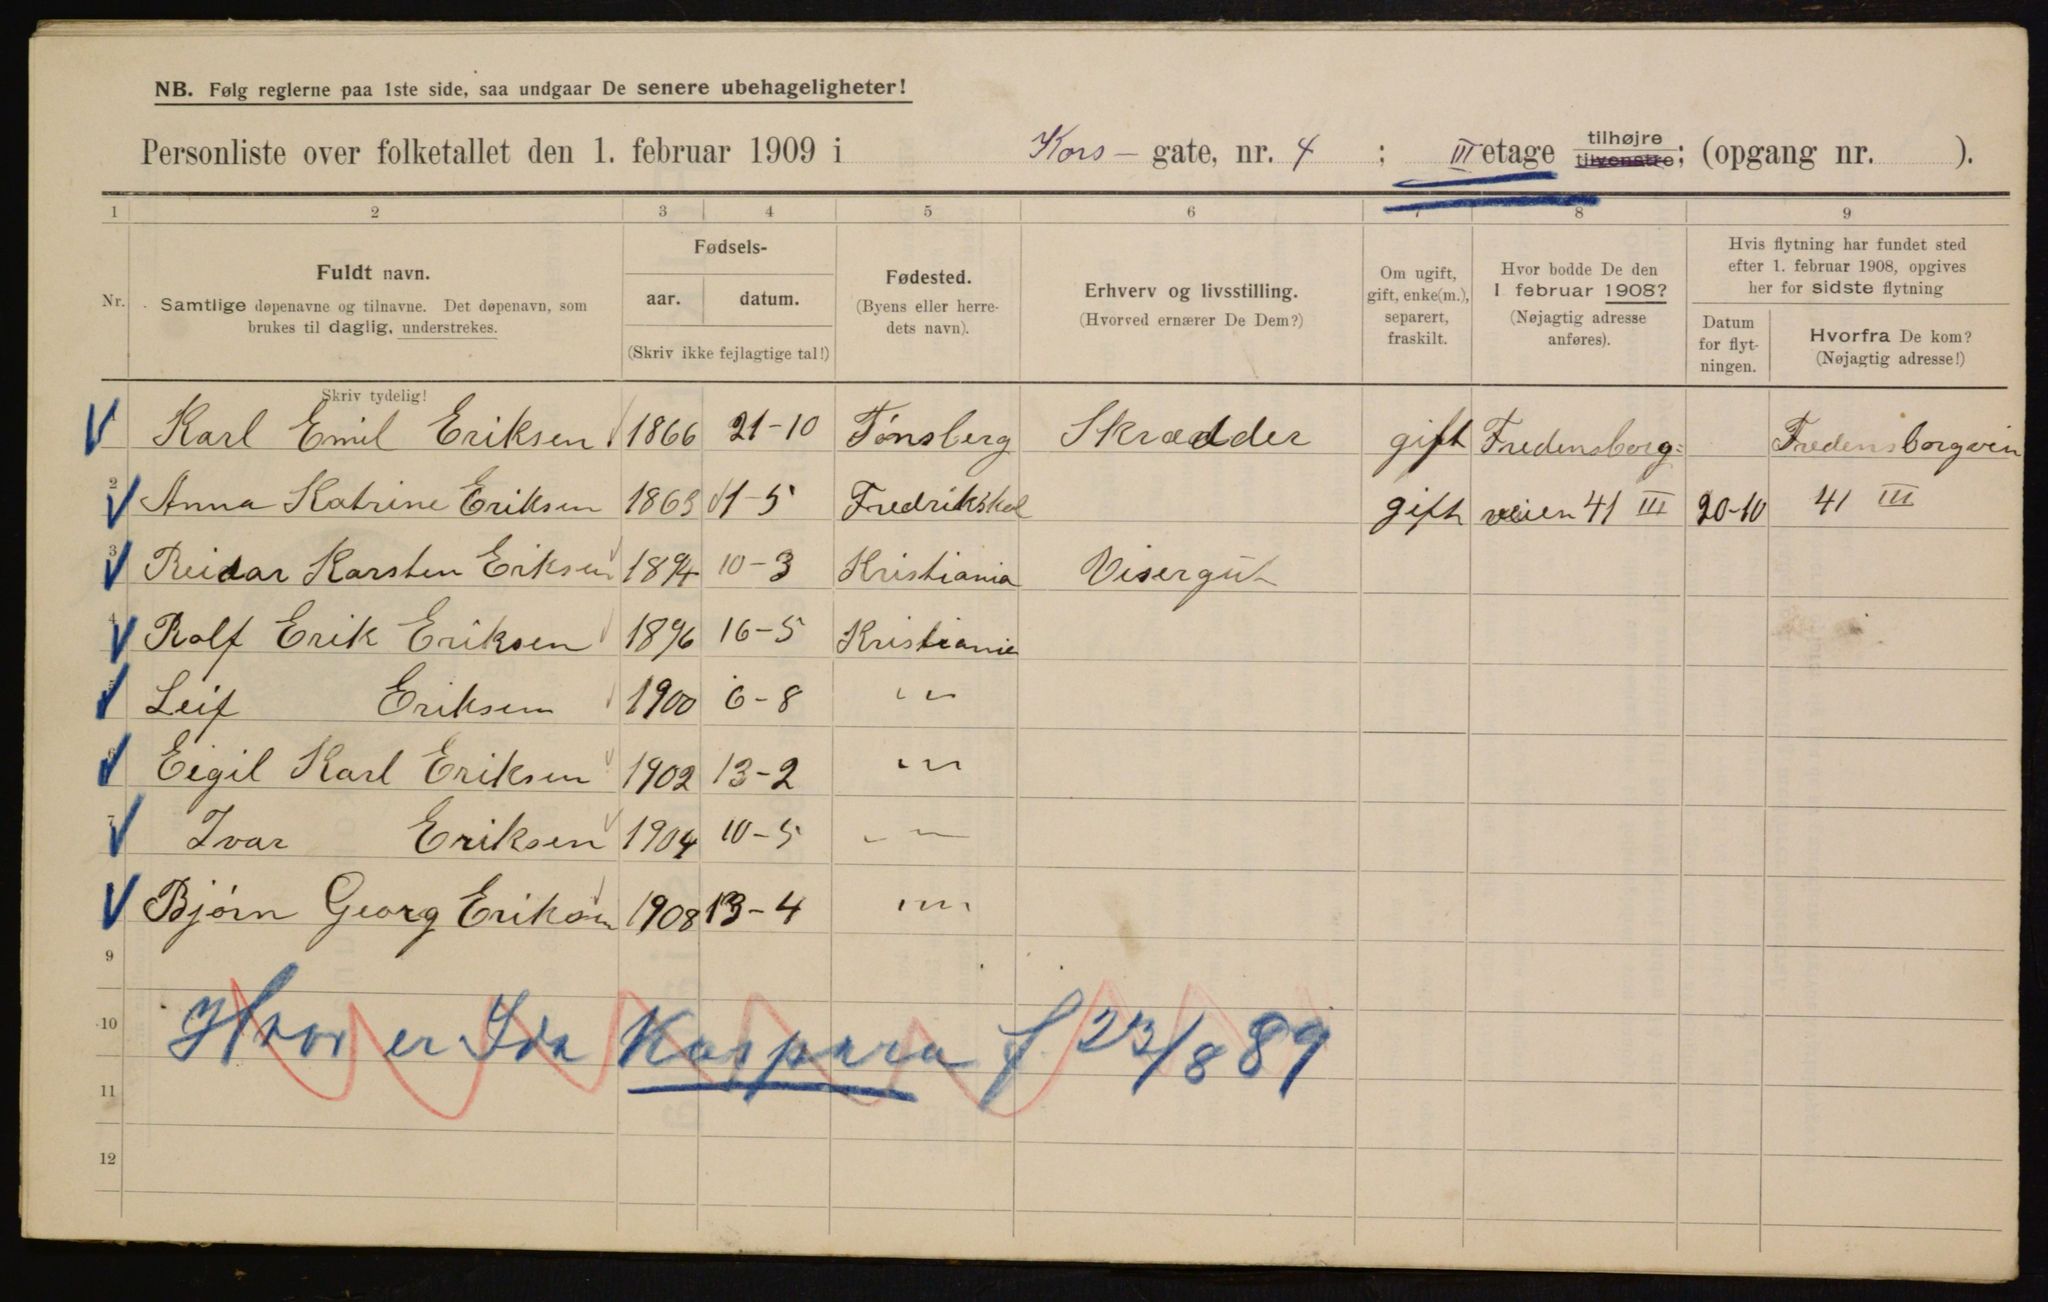 NB. Følg reglerne paa 1ste side, saa undgaar De senere ubehageligheter!
Personliste over folketallet den 1. februar 1909 i Kors - gate, nr. 4 ; III etage tilhøjre tilvenstre; (opgang nr. ).
1 2 3 4 5 6 7 8 9
Nr. Fuldt navn. Samtlige døpenavne og tilnavne. Det døpenavn, som
brukes til daglig, understrekes.
Skriv tydelig!
Fødsels-
aar. datum.
(Skriv ikke fejlagtige tal!)
Fødested.
(Byens eller herre-
dets navn).
Erhverv og livsstilling.
(Hvorved ernærer De Dem?)
Om ugift,
gift, enke(m.),
separert,
fraskilt.
Hvor bodde De den
1 februar 1908?
(Nøjagtig adresse
anføres).
Hvis flytning har fundet sted
efter 1. februar 1908, opgives
her for sidste flytning
Datum
for flyt-
ningen.
Hvorfra De kom?
(Nøjagtig adresse!)
1 Karl Emil Eriksen 1866 21-10 Tønsberg Skrædder gift Fredensborg= Fredensborgvein
2 Anna Katrine Eriksen 1863 1-5 Fredrikshal gift veien 41 III 20-10 41 III
3 Reidar Karsten Eriksen 1894 10-3 Kristiania Visergut
4 Rolf Erik Eriksen 1896 16-5 Kristiania
5 Leif Eriksen 1900 6-8 " "
6 Eigil Karl Eriksen 1902 13-2 " "
7 Ivar Eriksen 1904 10-5 " "
Bjørn Georg Eriksen 1908 13-4 " "
9
10 Hvor er Ida Kaspara f 23/8 89
11
12